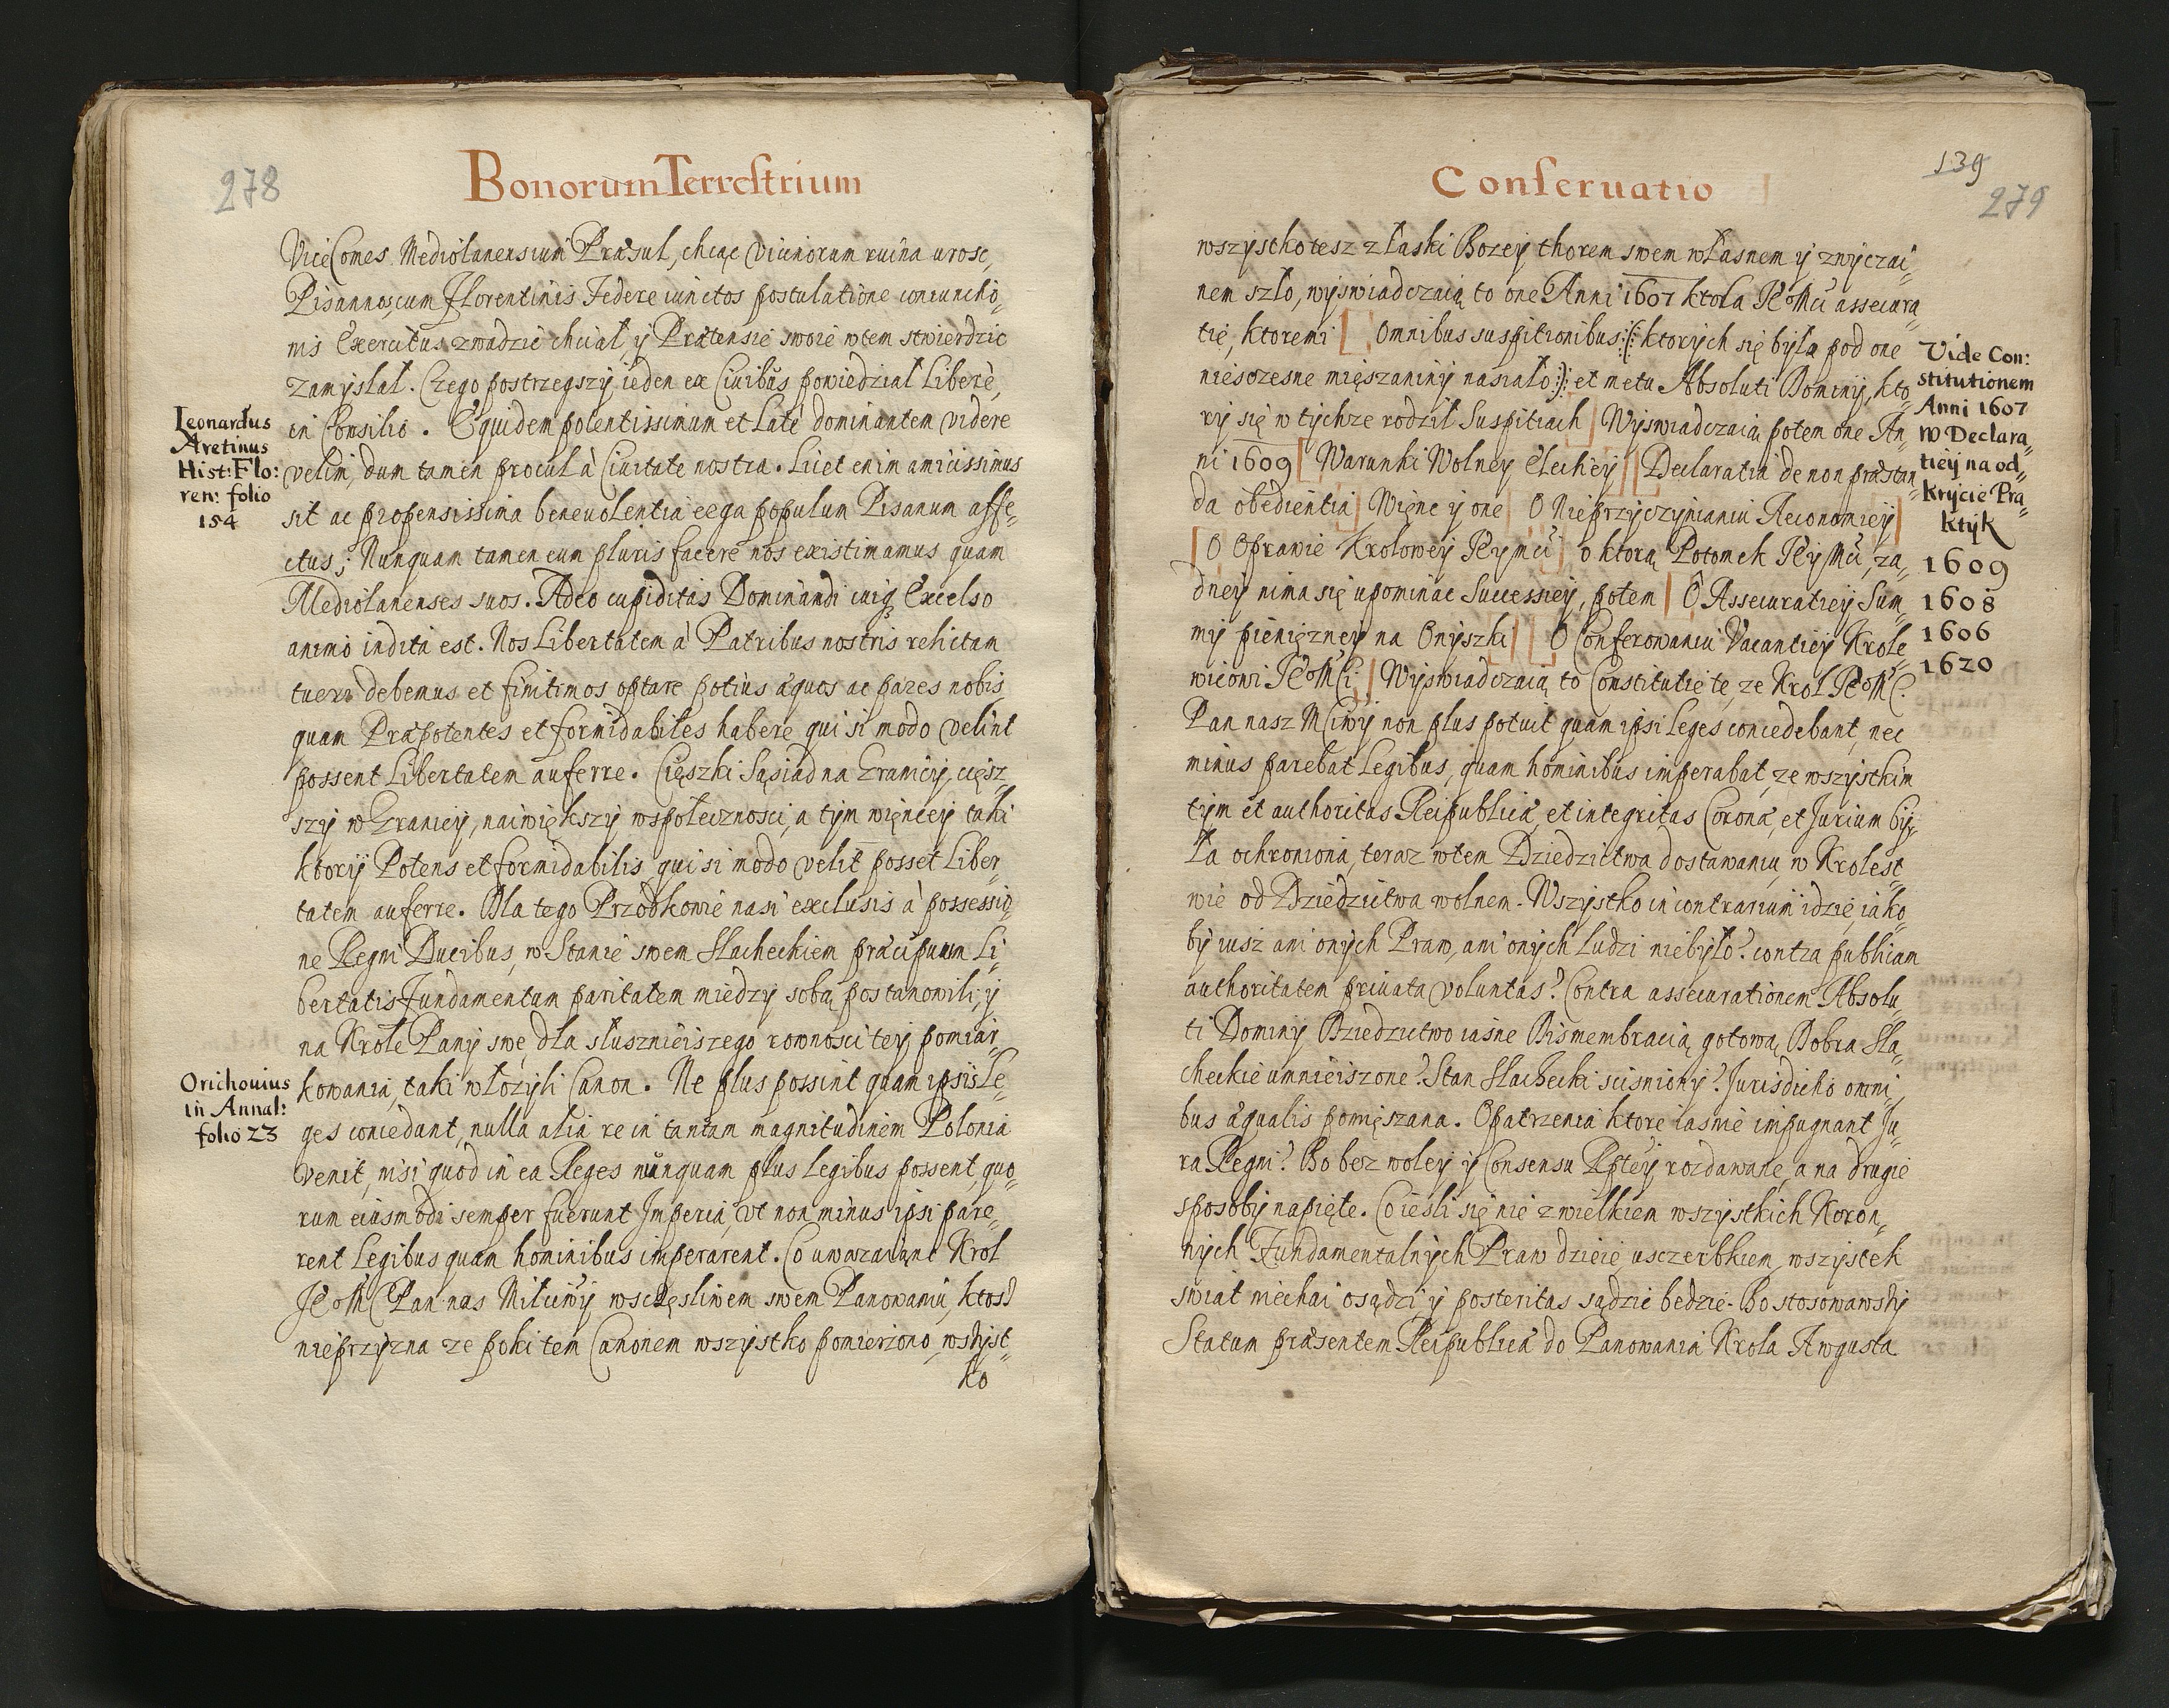 278
Bonorum Terrestrium
ViceComes Mediolanensium Præsul, chcąc vicinorum ruina urosc,
Pisannos cum Florentinis Federe iunctos postulatione coniunctio„
nis Exercitus zwadzic chciał, y Prætensie swoie wtem stwierdzic
zamyslał. Czego postrzegszy ieden ex Ciuibus powiedział Liberè,
in Consilio. Equidem potentissimum et Latè dominantem videre
velim, dum tamen procul à Ciuitate nostra. Licet enim amicissimus
sit ac propensissima beneuolentia erga populum Pisanum affe„
ctus; Nunquam tamen eum pluris facere nos existimamus quam
Mediolanenses suos. Adeo cupiditas Dominandi cuiq; Excelso
animo indita est. Nos Libertatem à Patribus nostris relictam
tueri debemus et finitimos optare potius æquos ac pares nobis
quam Præpotentes et formidabiles habere qui si modo velint
possent Libertatem auferre. Cięszki Sąsiad na Granicy, cięsz„
szy w Granicy, naiwiększy wspołecznosci, a tym więncey taki
ktory Potens et formidabilis, qui si modo velit posset Liber„
tatem auferre. Dla tego Przodkowie nasi exclusis à possessio„
ne Regni Ducibus, w Stanie swem Slacheckiem præcipuum Li„
bertatis Fundamentum paritatem miedzy sobą postanowili, y
na Krole Pany swe, dla słusznieiszego rownosci tey pomiar„
kowania, taki włozyli Canon. Ne plus possint quam ipsis Le„
ges concedant, nulla alia re in tantam magnitudinem Polonia
venit, nisi quod in ea Reges nunquam plus Legibus possent, quo„
rum eiusmodi semper fuerunt Imperia, vt non minus ipsi pare„
rent Legibus quam hominibus imperarent. Co uwazaiąnc Krol
JEoMC Pan nas Miłciwy wsczęsliwem swem Panowaniu, ktosz
nieprzyzna ze poki tem Canonem wszystko pomierzono, wszyst„
ko
Leonardus
Aretinus
Hist: Flo:
ren: folio
154
Orichouius
in Annal:
folio 23
139
279
Conseruatio
wszystko tesz z łaski Bozey thorem swem własnem y zwyczai„
nem szło, wyswiadczaią to one Anni 1607 Krola JEoMci assecura„
tie, ktoremi [ Omnibus suspitionibus :(: ktorych się była pod one
niesczesne mięszaniny nasiało :): et metu Absoluti Dominij, kto„
ry się w tychze rodził Suspitiach ] Wyswiadczaią potem one An„
ni 1609 [ Warunki Wolney Elechiey ] [ Declaratia de non præstan„
da obedientia ] Więnc y one [ O Nieprzyczynianiu Aeconomiey ]
[ O Oprawie Krolowey JEyMci ] o ktorą Potomek JEyMci, za„
dney nima się upominac Successiey, potem [ O Assecuratiey Sum„
my pieniężney na Onyszki ] [ O Conferowaniu Vacantiey Krole„
wicowi JEoMCi ] Wyswiadczaią to Constitutie te, ze Krol JEoMC.
Pan nasz Mciwy non plus potuit quam ipsi Leges concedebant, nec
minus parebat Legibus, quam hominibus imperabat, ze wszystkim
tym et authoritas Reipublicæ, et integritas Coronæ, et Jurium by„
ła ochroniona, teraz wtem Dziedzictwa dostawaniu, w Krolest„
wie od Dziedzictwa wolnem. Wszystko in contrarium idzie, iako„
by iusz ani onych Praw, ani onych Ludzi niebyło? contra publicam
authoritatem priuata voluntas? Contra assecurationem Absolu„
ti Dominij Dziedzictwo iasne Dismembracią gotową, Dobra Sla„
checkie umnieiszone? Stan Slachecki scisniony? Jurisdictio omni„
bus æqualis pomięszana. Opatrzenia ktore iasnie impugnant Ju„
ra Regni? Bo bez woley y Consensu Rptey, rozdawane, a na drugie
sposoby napięte. Co iesli się nie zwielkiem wszystkich Koron„
nych Fundamentalnych Praw dzieie usczerbkiem, wszystek
swiat niechai osądzi, y posteritas sądzic bedzie. Bo stosowawszy
Statum præsentem Reipublicæ do Panowania Krola Awgusta
Vide Con:
stitutionem
Anni 1607
w Declara„
tiey na od„
krycie Pra„
ktyk
1609
1608
1606
1620